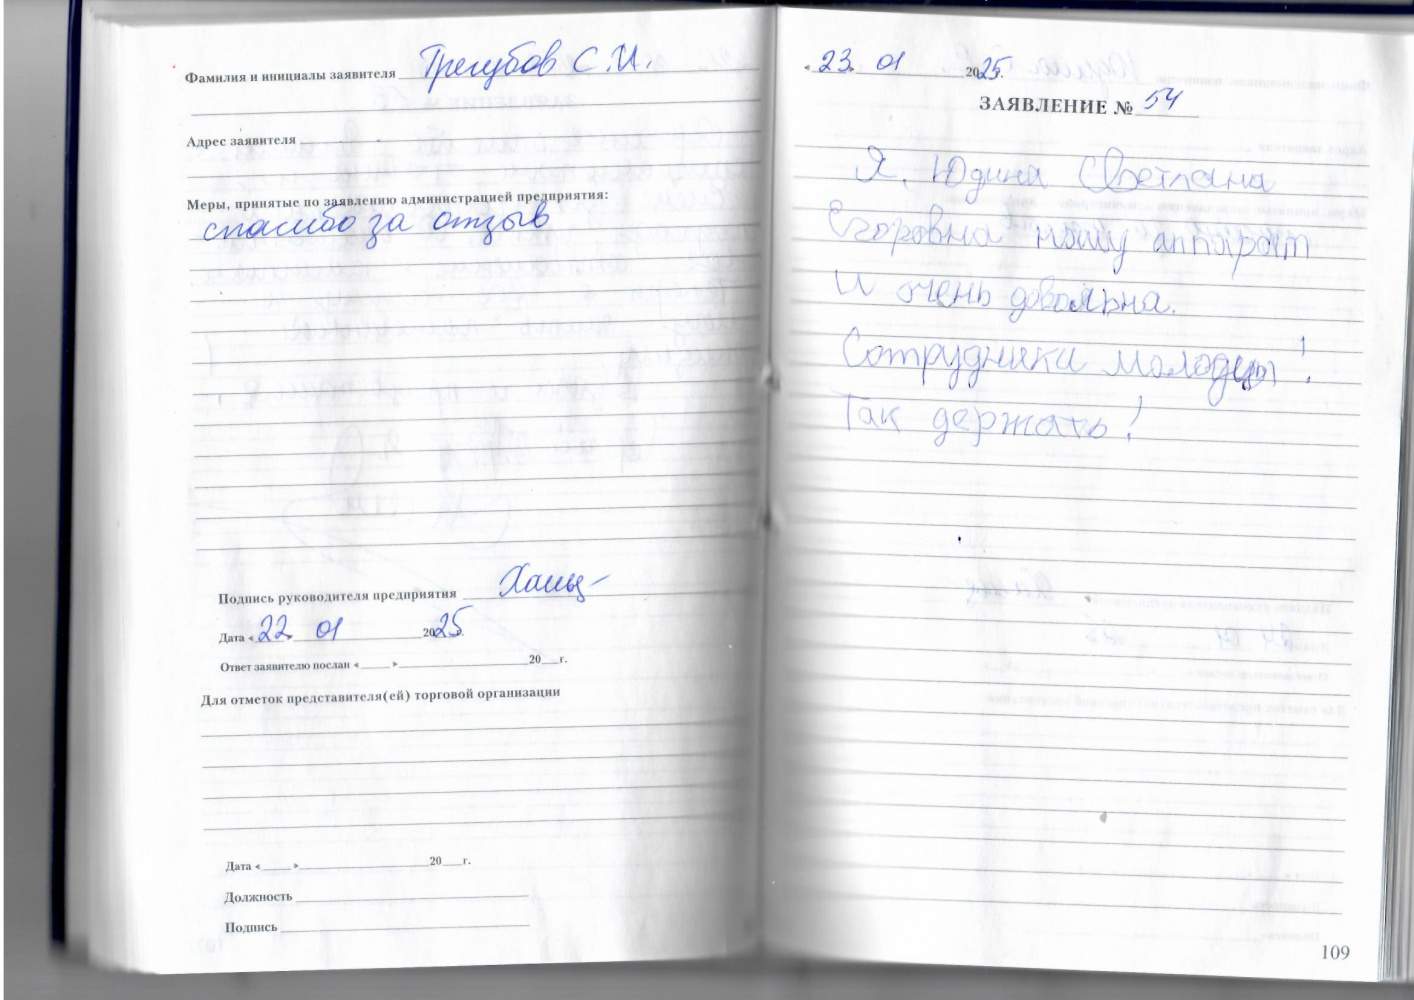 Фамилия и инициалы заявителя Трегубов С.И.
Адрес заявителя
Меры, принятые по заявлению администрацией предприятия:
спасибо за отзыв
Подпись руководителя предприятия
Дата « 22 » 01 2025 г.
Ответ заявителю послан «____» ____ 20__ г.
Для отметок представителя(ей) торговой организации
Дата «____» ____ 20__ г.
Должность
Подпись
« 23 » 01 2025 г.
ЗАЯВЛЕНИЕ № 54
Я, Юдина Светлана
Егоровна ношу аппарат
и очень довольна.
Сотрудники молодцы!
Так держать!
109